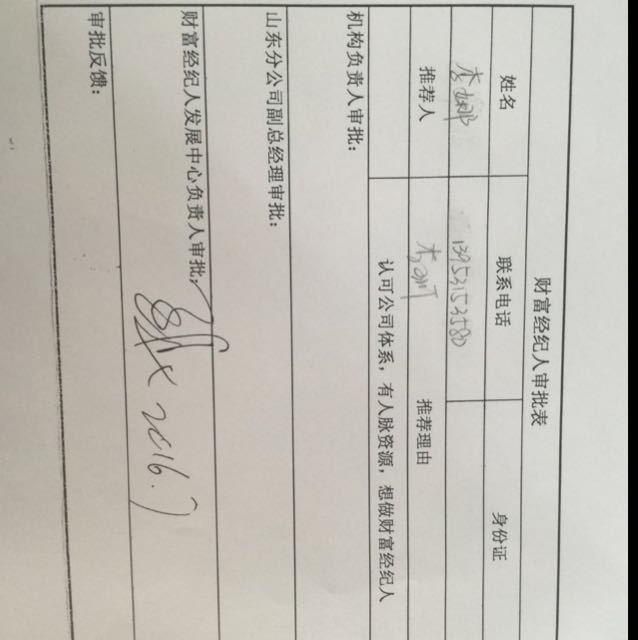 财富经纪人审批表
姓名 联系电话 身份证
李娜 13953153580
推荐人 李丽 推荐理由
认可公司体系，有人脉资源，想做财富经纪人
机构负责人审批：
山东分公司副总经理审批：
财富经纪人发展中心负责人审批：
2016.7
审批反馈：